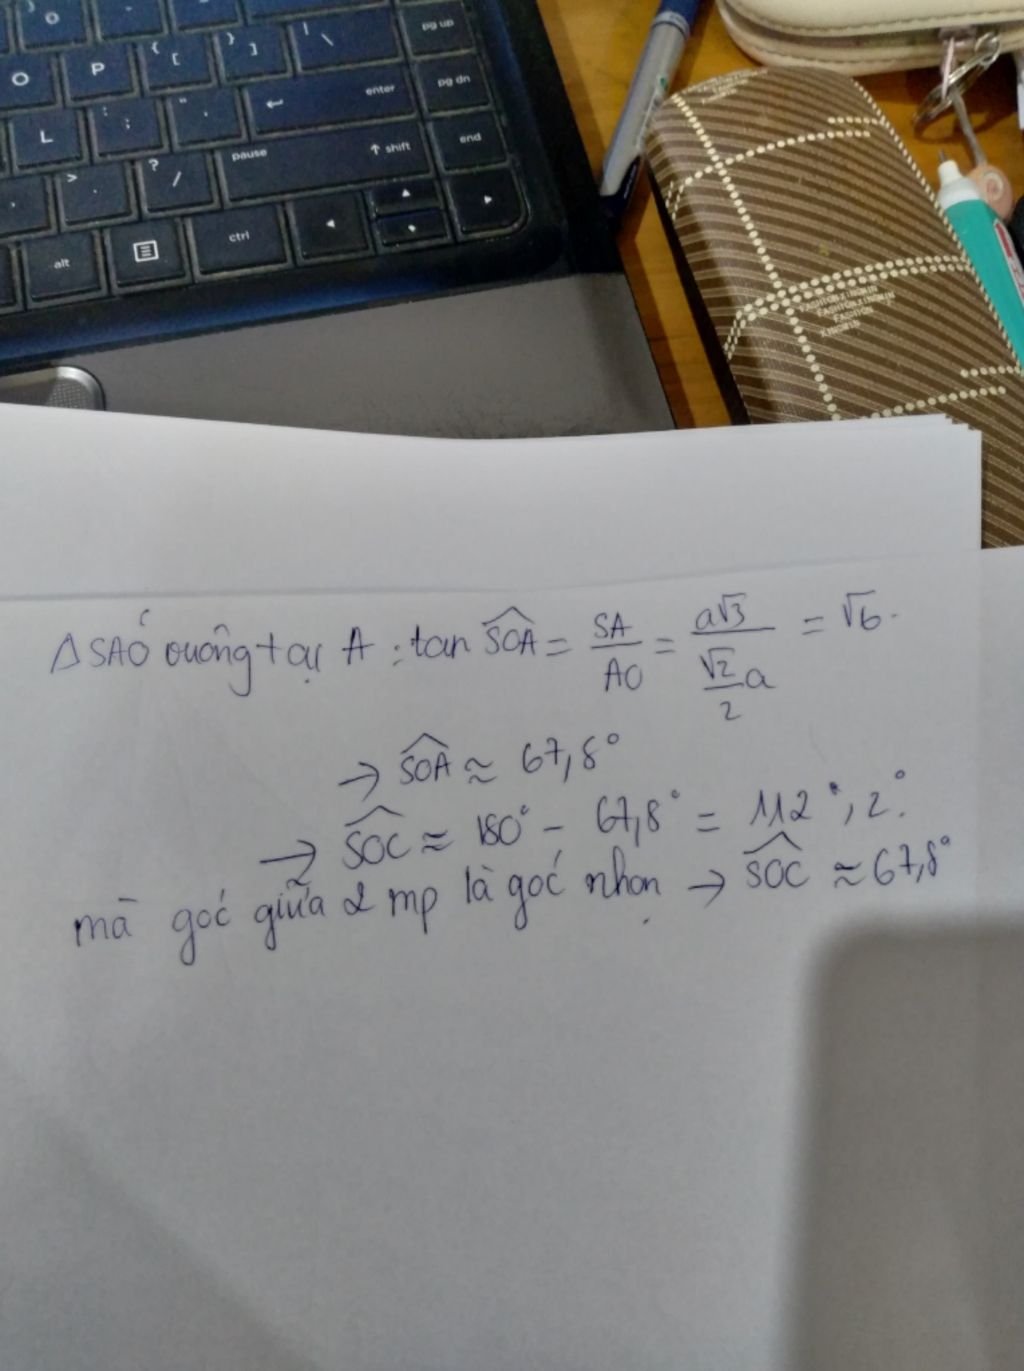 O
O
P
{ [
} ]
| \
pg up
L
: ;
" '
enter
pg dn
> .
? /
pause
↑ shift
end
alt
ctrl
ΔSAO vuông tại A : tan SOA = SA/AO = a√3 / (√2/2 a) = √6.
→ SOA ≈ 67,8°
→ SOC ≈ 180° - 67,8° = 112°,2°.
mà góc giữa 2 mp là góc nhọn → SOC ≈ 67,8°